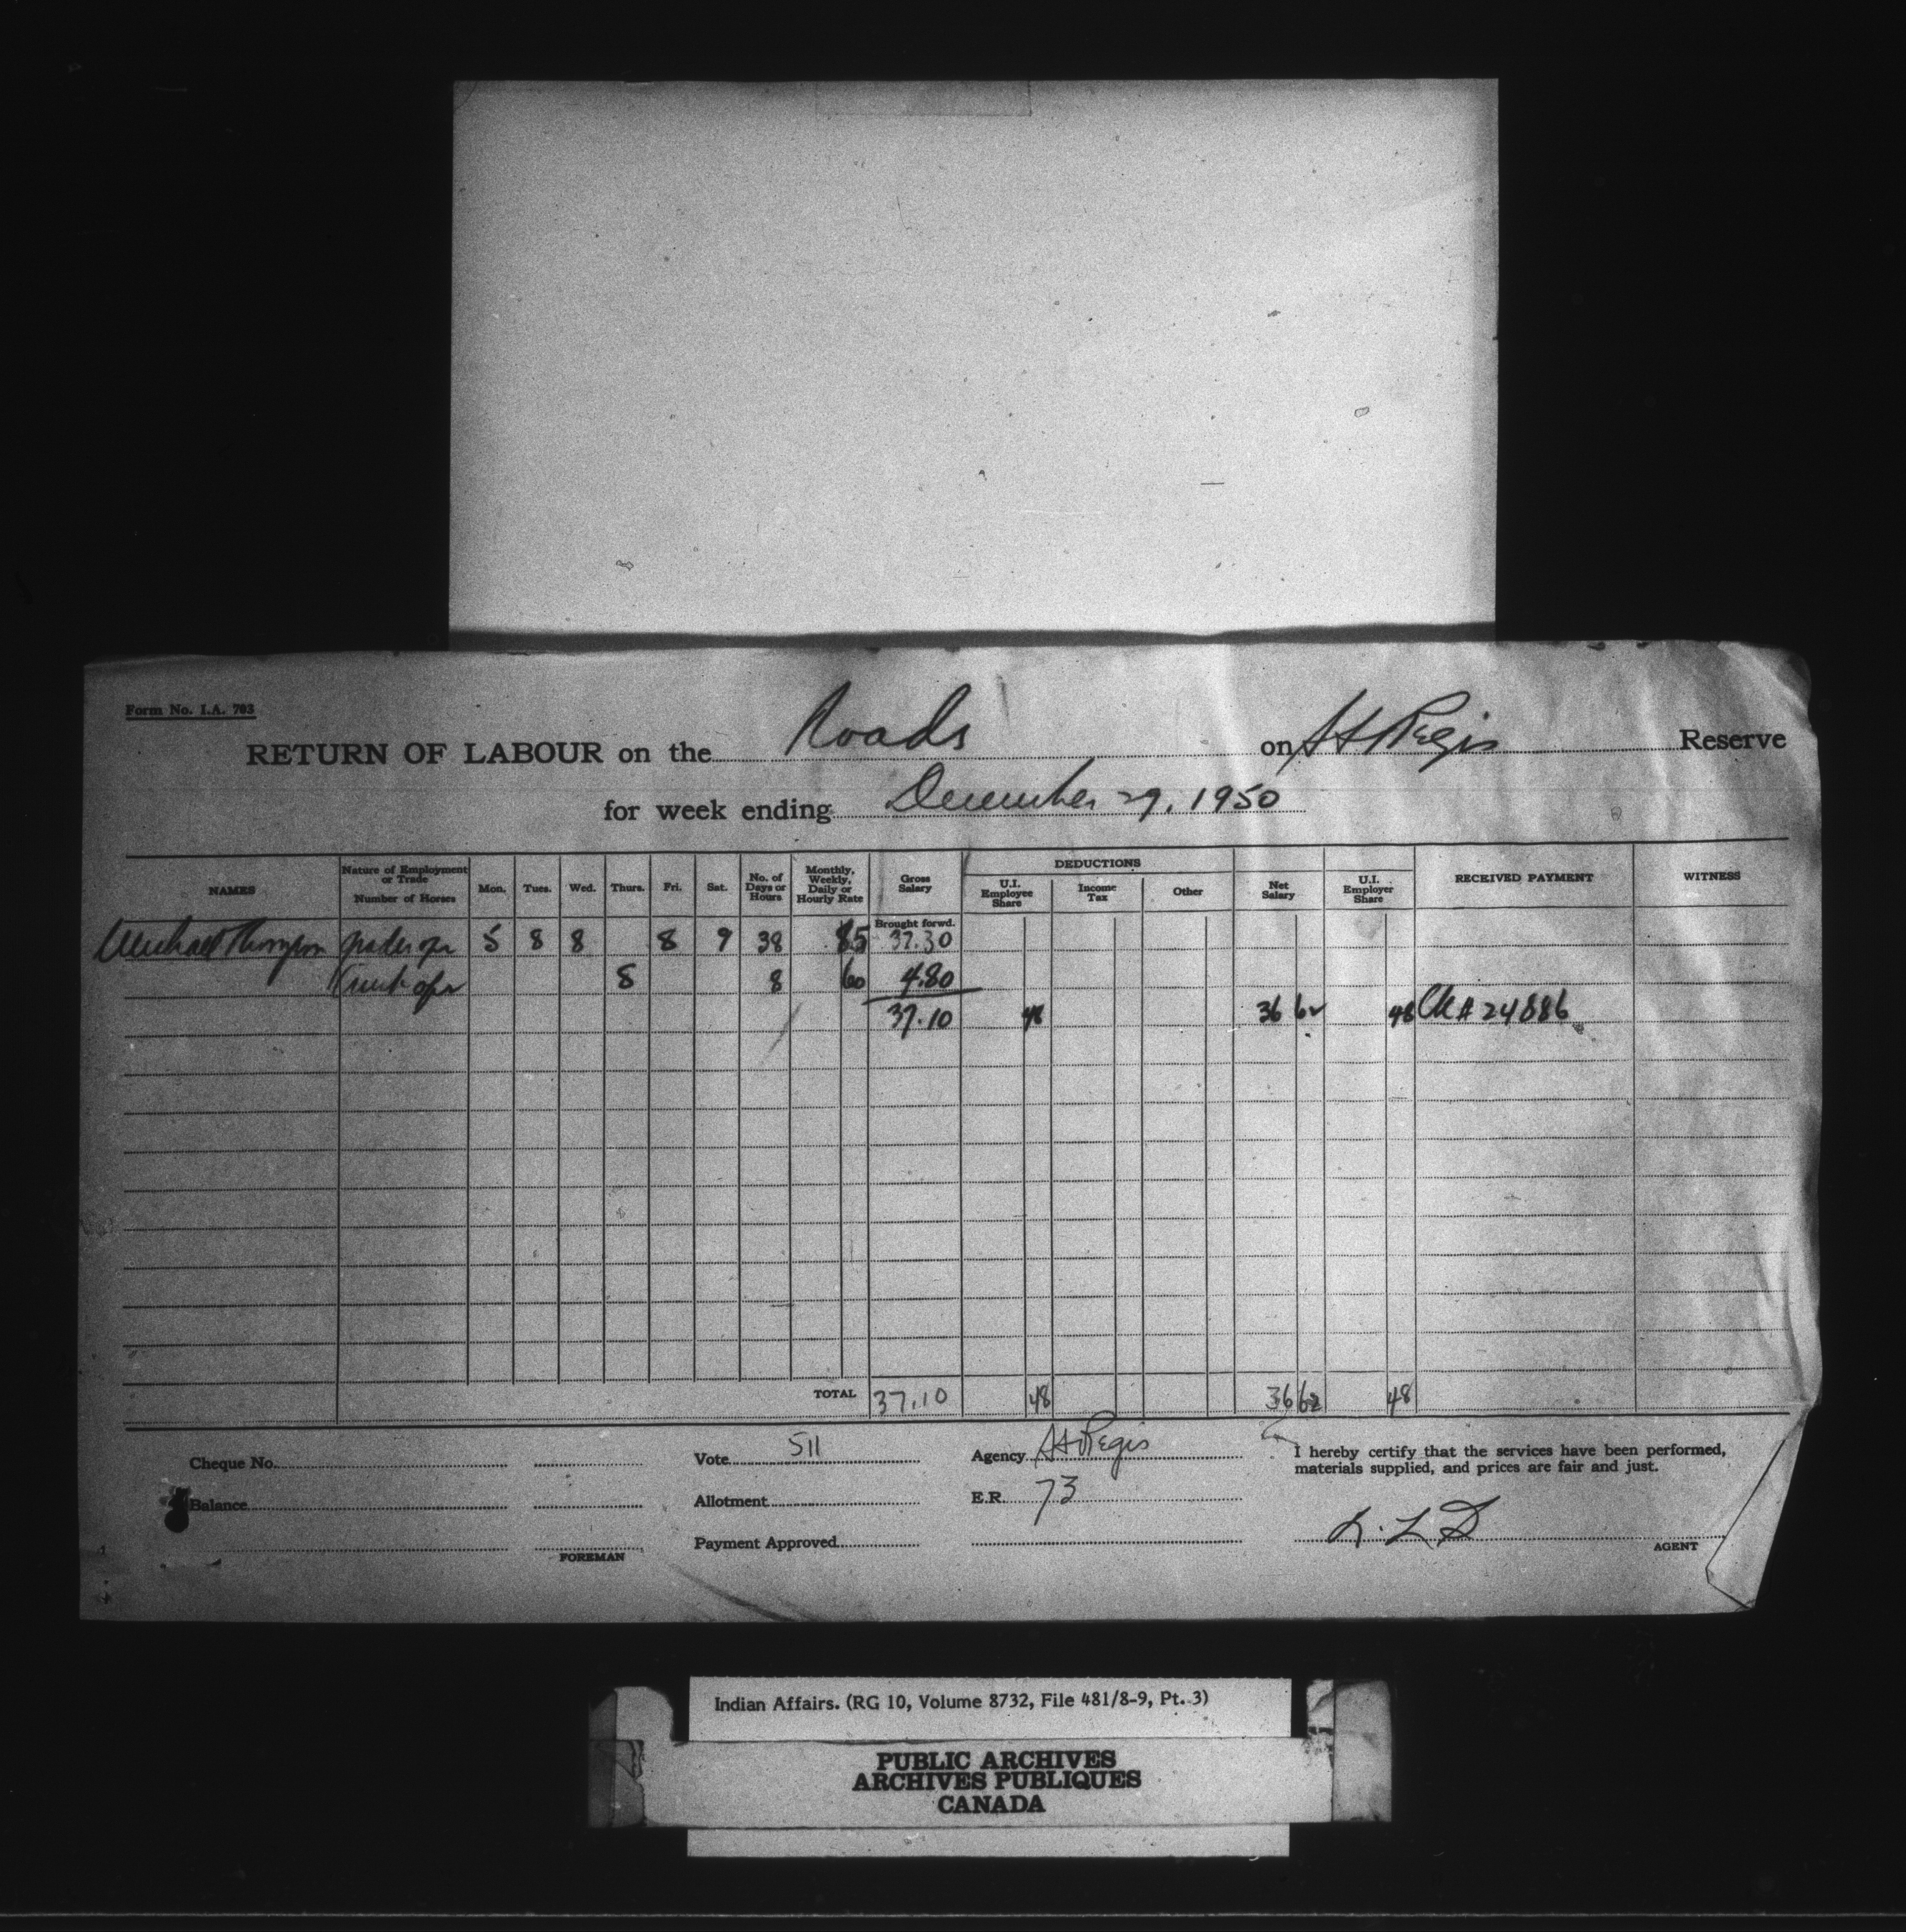 Form No. I.A. 703
RETURN OF LABOUR on the Roads on St Regis Reserve
for week ending December 29, 1950
NAMES Nature of Employment or Trade Number of Horses Mon. Tues. Wed. Thurs. Fri. Sat. No. of Days or Hours Monthly, Weekly, Daily or Hourly Rate Gross Salary DEDUCTIONS U.I. Employee Share Income Tax Other Net Salary U.I. Employer Share RECEIVED PAYMENT WITNESS
Brought forwd.
Michael Thompson grader opr 5 8 8 8 9 38 85 32.30
Truck opr 8 8 60 4.80
37.10 48 36 62 48 Ck # 24886
TOTAL 37.10 48 36 62 48
Cheque No. Vote 511 Agency St Regis I hereby certify that the services have been performed,
materials supplied, and prices are fair and just.
Balance Allotment E.R. 73
Payment Approved
FOREMAN AGENT
Indian Affairs. (RG 10, Volume 8732, File 481/8-9, Pt. 3)
PUBLIC ARCHIVES
ARCHIVES PUBLIQUES
CANADA